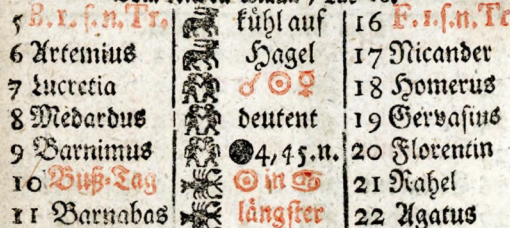 5 B. 1. s. n. Tr. kühl auf 16 F. 1. s. n. Tr
6 Artemius Hagel 17 Nicander
7 Lucretia ☌ ☉ ☿ 18 Homerus
8 Medardus deutent 19 Gervasius
9 Barnimus ●4,45.n. 20 Florentin
10 Buß-Tag ☉ in ♋ 21 Rahel
11 Barnabas längster 22 Agatus